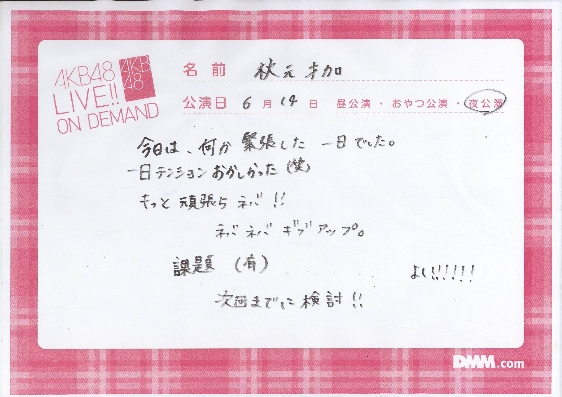 AKB48
LIVE!!
ON DEMAND
AKB
48
名前 秋元才加
公演日 6月14日 昼公演・おやつ公演・夜公演
今日は、何か緊張した一日でした。
一日テンションおかしかった(笑)
もっと頑張らネバ!!
ネバネバギブアップ。
課題(有) よし!!!!!!
次回までに検討!!
DMM.com